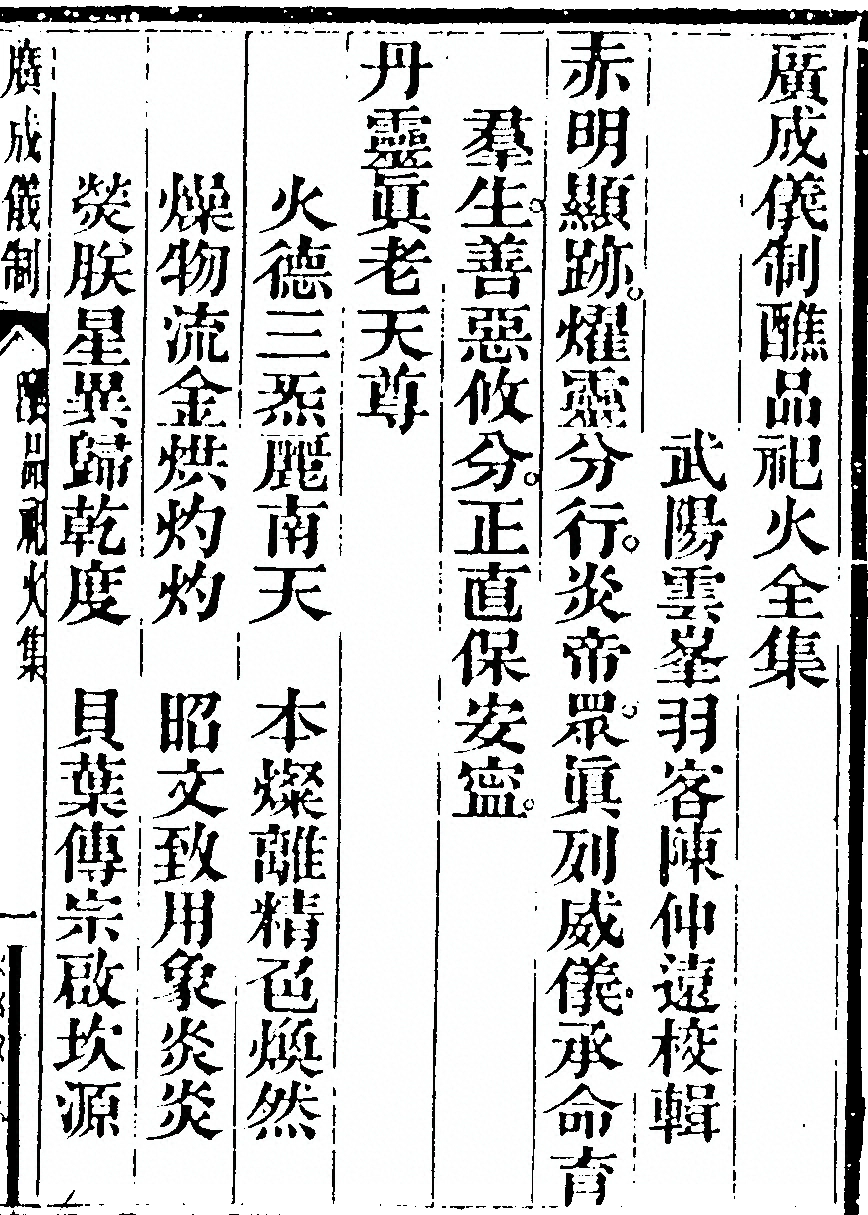 廣成儀制醮品祀火全集
武陽雲峯羽客陳仲遠校輯
赤明顯跡。燿靈分行。炎帝眾。眞列威儀。承命育
羣生。善惡攸分。正直保安寍。
丹靈眞老天尊
火德三炁麗南天　本燦離精色煥然
燥物流金烘灼灼　昭文致用象炎炎
熒朕星異歸乾度　貝葉傳宗啟坎源
廣成儀制　醮品祀火集　一